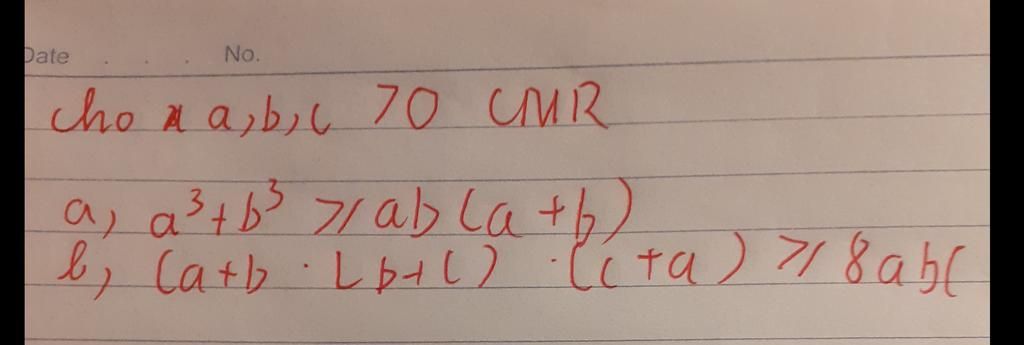 Date . . . No.
cho a,b,c >0 CMR
a, a³+b³ ≥ ab(a+b)
b, (a+b · (b+c) · (c+a) ≥ 8abc